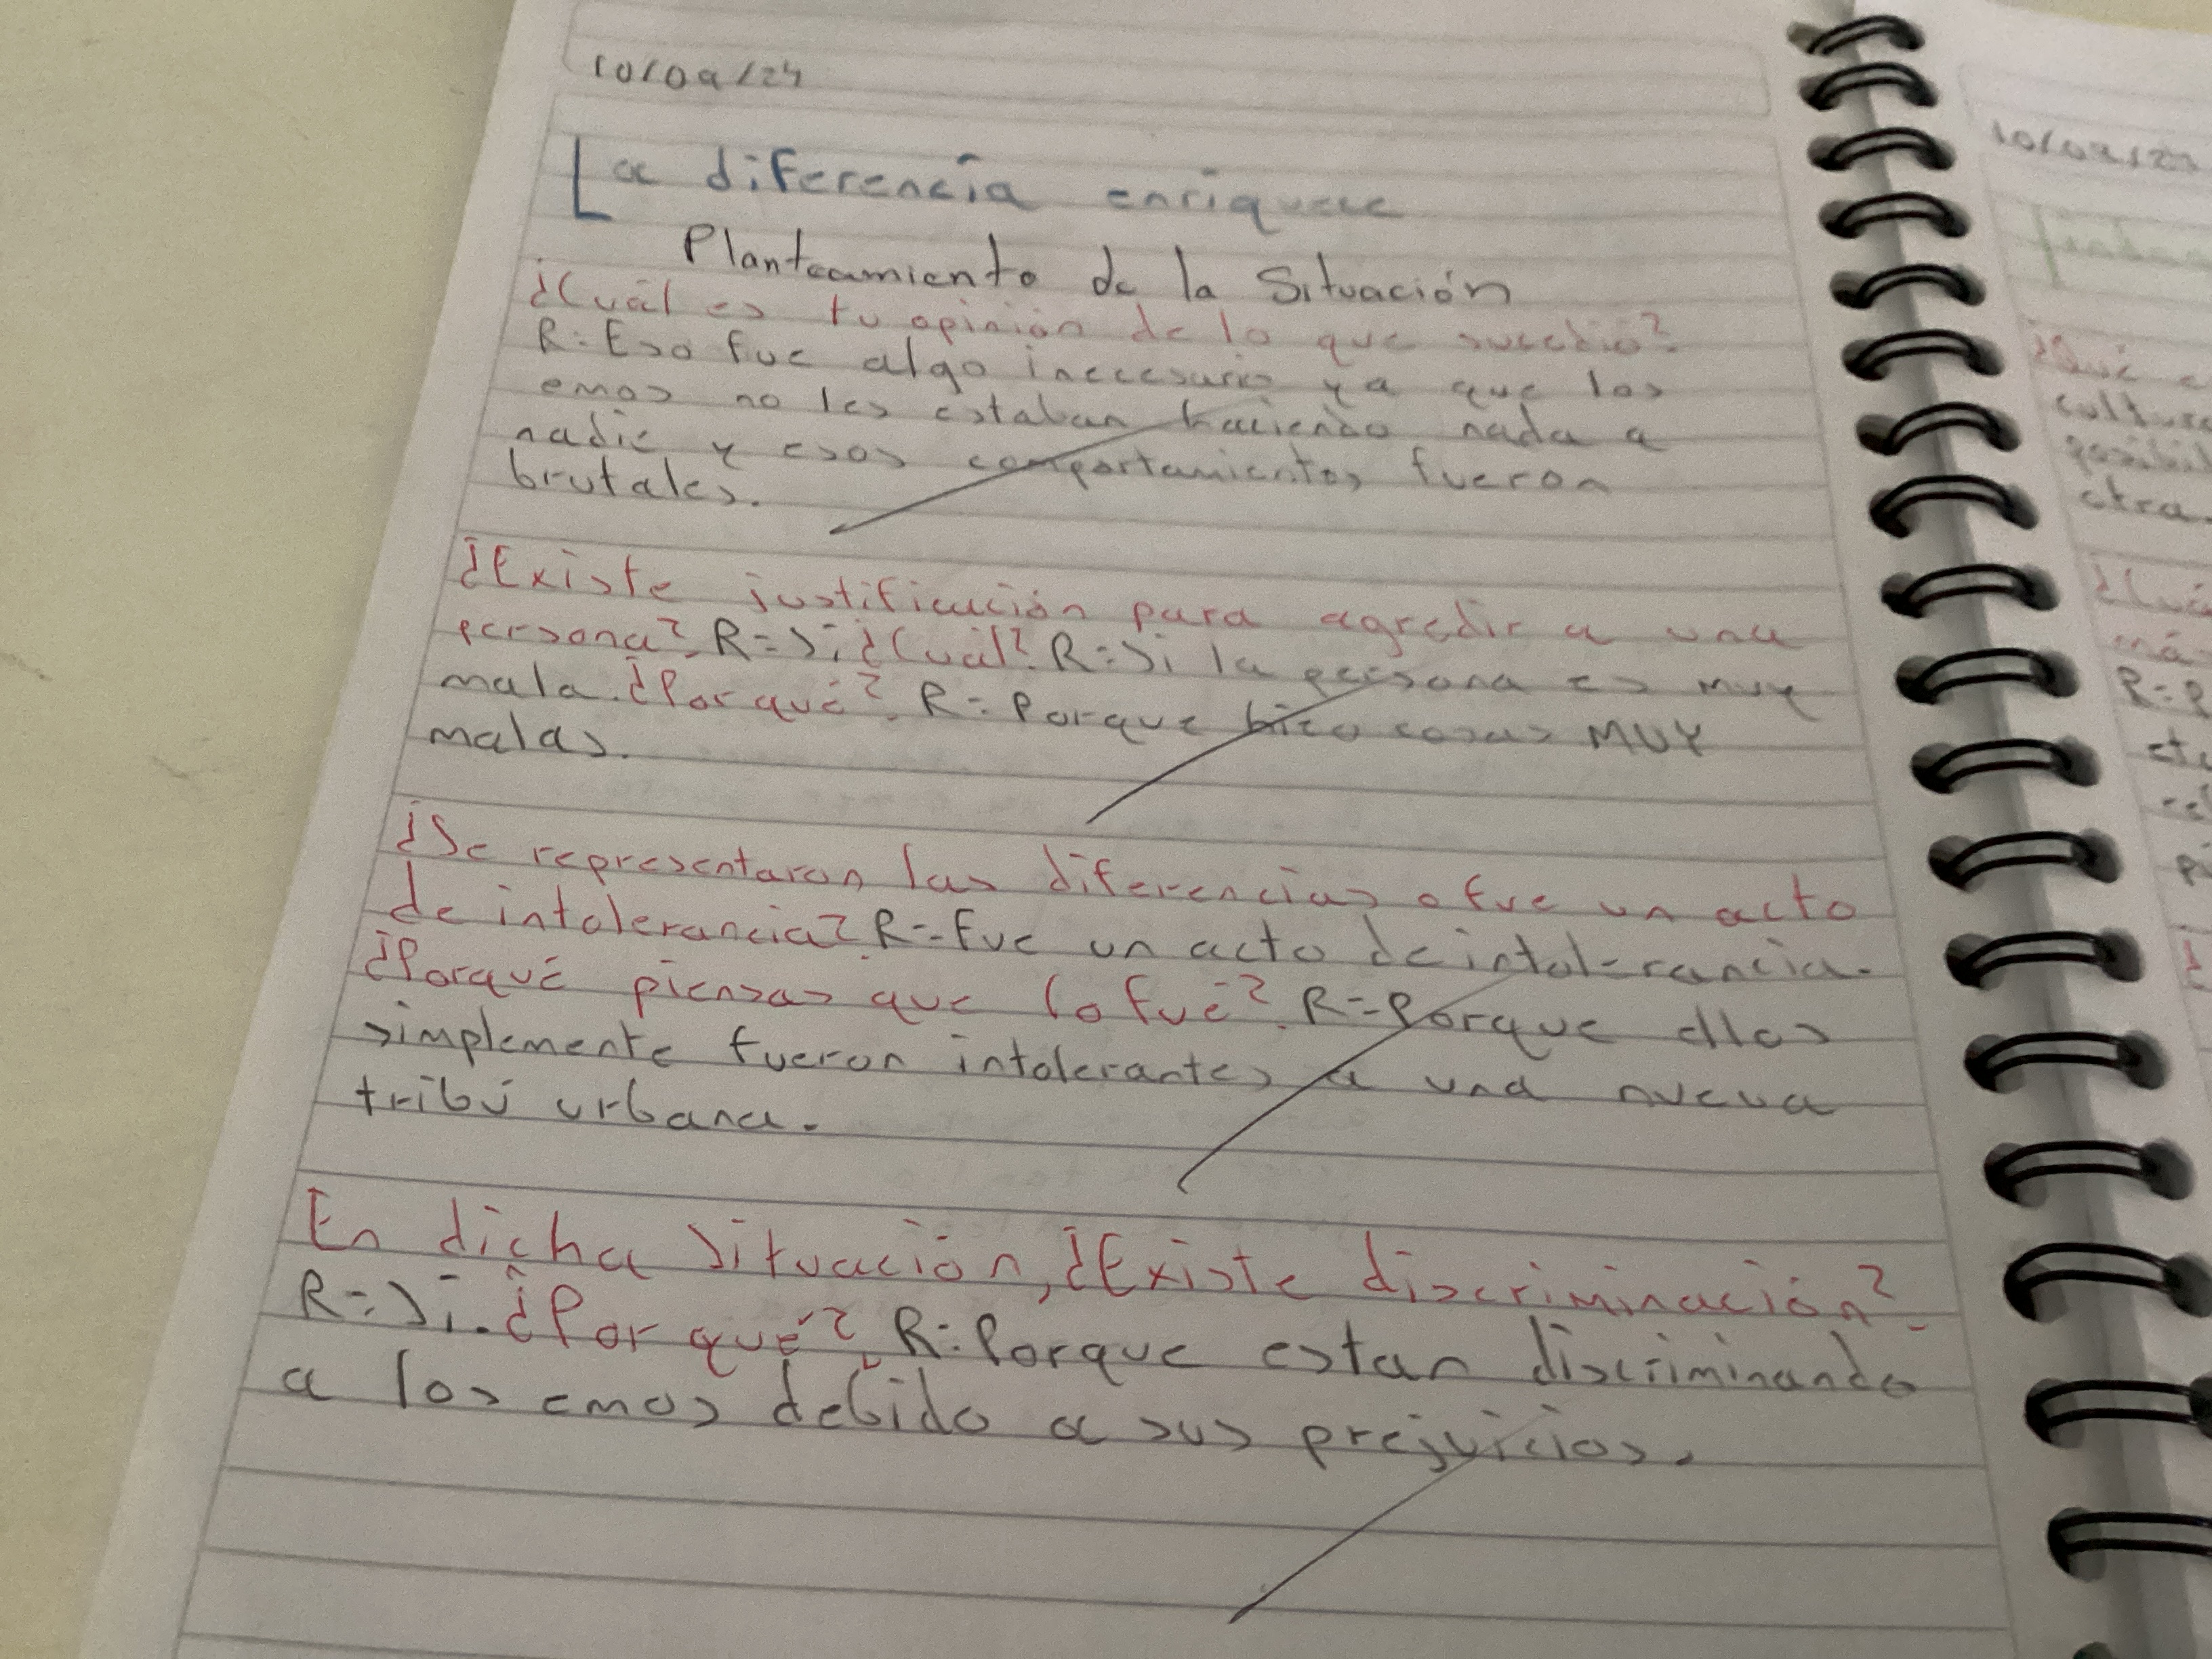 10/09/24
La diferencía enriquece
Planteamiento de la Situación
¿Cuál es tu opinión de lo que sucedió?
R=Eso fue algo inecesario ya que los
emos no les estaban haciendo nada a
nadie y esos comportamientos fueron
brutales.
¿Existe justificación para agredir a una
persona? R=Si ¿Cuál? R=Si la persona es muy
mala. ¿Por qué? R=Porque hizo cosas MUY
malas.
¿Se representaron las diferencias o fue un acto
de intolerancia? R=Fue un acto de intolerancia.
¿Porqué piensas que lo fué? R=Porque ellos
simplemente fueron intolerantes a una nueva
tribú urbana.
En dicha Situación, ¿Existe discriminación?
R=Si. ¿Por qué? R=Porque estan discriminando
a los emos debido a sus prejuicios.
10/09/2
¿Qué
cultura
otra
R=P